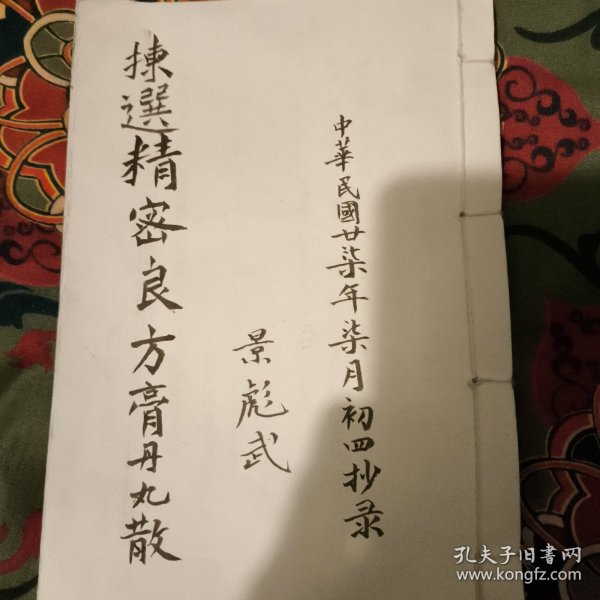 中華民國廿柒年柒月初四抄录
景彪武
揀選精密良方膏丹丸散
孔夫子旧书网
www.kongfz.com